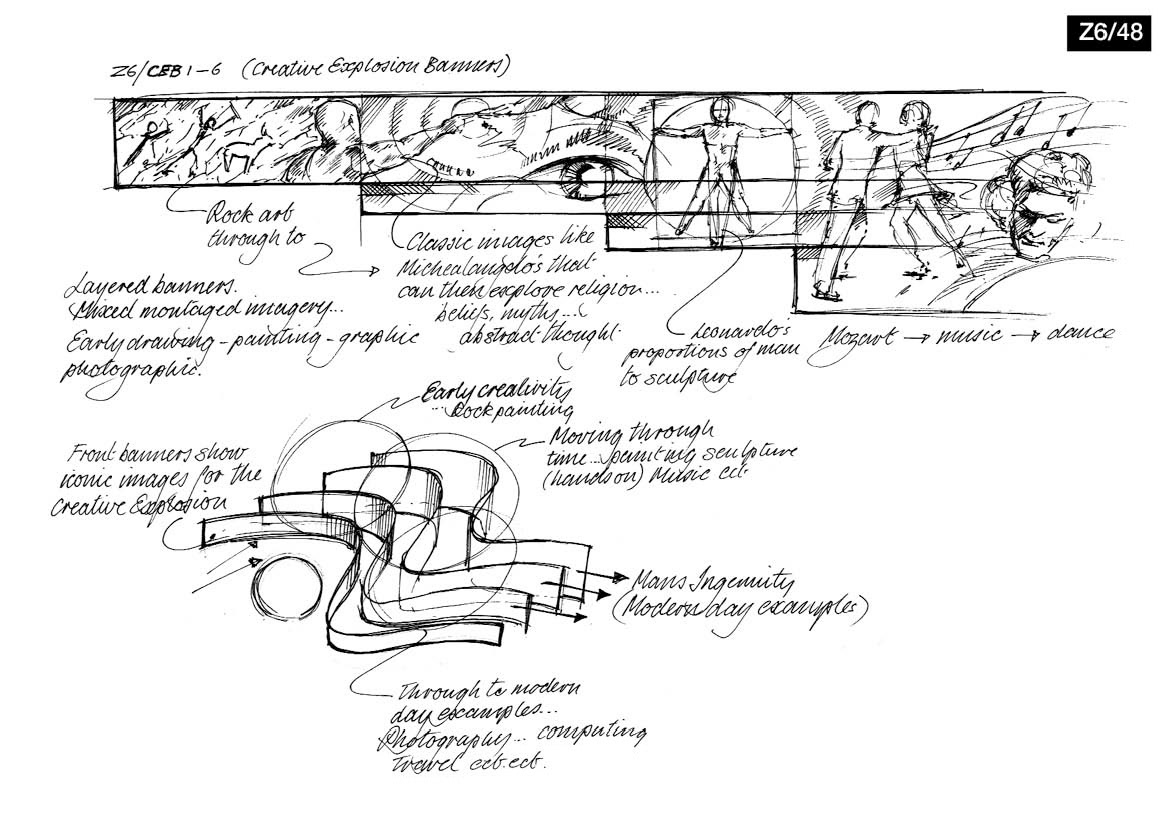 Z6/48
Z6/CEB 1-6 (Creative Explosion Banners)
Rock art
through to
Classic images like
Michealangelo's that
can then explore religion...
beliefs, myths...
abstract thought
Layered banners.
Mixed montaged imagery...
Early drawing - painting - graphic
photographic.
Leonardo's
proportions of man
to sculpture
Mozart → music → dance
Early creativity
... Rock painting
Moving through
time... painting sculpture
(hands on) Music ect
Front banners show
iconic images for the
Creative Explosion
Mans Ingenuity
(Modern day examples)
Through to modern
day examples...
Photography... computing
Travel ect. ect.